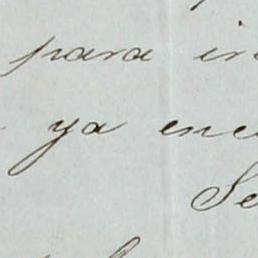 para in
ya enc
Se